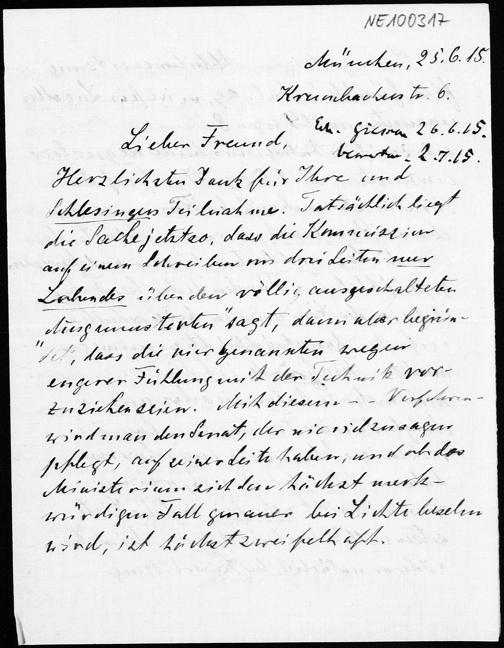 NE100317
München, 25.6.15.
Krumbacherstr. 6.
Erh. Giessen 26.6.15.
beantw. 2.7.15.
Lieber Freund,
Herzlichsten Dank für Ihre und
Schlesingers Teilnahme. Tatsächlich liegt
die Sache jetzt so, dass die Kommission
auf einem Schreiben von drei Seiten nur
Lobendes über den völlig ausgeschalteten
"ausgemusterten" sagt, dann aber begrün-
det, dass die vier Genannten wegen
engerer Fühlung mit der Technik vor-
zuziehen seien. Mit diesem - -
wird man den Senat, der nie viel zu sagen
pflegt, auf seiner Seite haben, und ob das
Ministerium sich den höchst merk-
würdigen Fall genauer bei Lichte besehen
wird, ist höchst zweifelhaft.